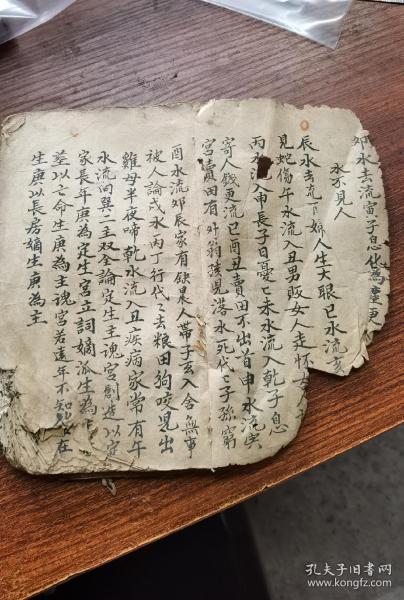 卯水去流寅子息
永不見人
辰水去 婦人生大眼巳水流亥
見蛇傷午水流入丑男販女人走怀
丙水流入申長子日憂亡未水流入乾子息
寄人錢更流巳酉丑賣田不出首申水流寅
宮賣田有外翁孩見落水死代亡子孫窮
酉水流卯辰家有缺 人蒂子玄入舍無事
被人論戌水丙丁行代亡去粮田狗咬見出
雞母半夜啼乾水流入丑疾病家常有午
水流向巽一主双全論定生主魂宮創造以定
家長年庚為定生宮立詞嫡派生為
墓以亡命生庚為主魂宮若遠年不知 在
生庚以長房嫡生庚為主
孔夫子旧书网
www.kongfz.com